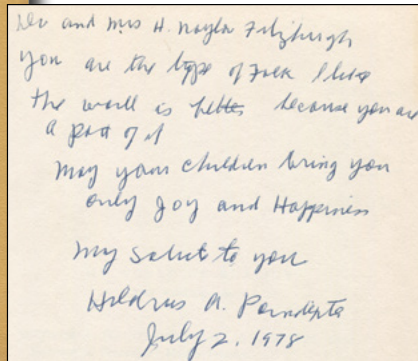 Dr and Mrs H. Naylor Fitzhugh
you are the type of Folk I like
the world is better because you are
a part of it
May your children bring you
only Joy and Happiness
My salut to you
Hildrus A. Poindexter
July 2, 1978